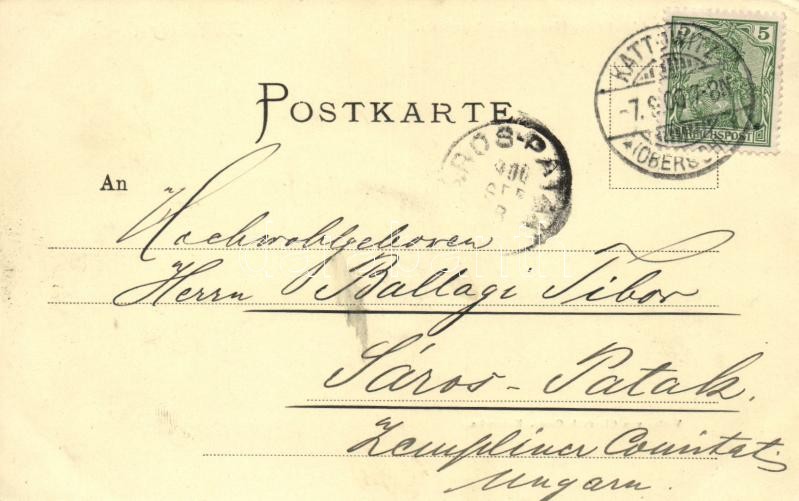 POSTKARTE
5
REICHSPOST
KATTOWITZ
-7.9.00.7-8N
*(OBERSCHL
SÁROS-PATAK
900
SEP
8
An
Hochwohlgeboren
Herrn Ballagi Tibor
Sáros-Patak.
Zempliner Comitat
Ungarn.